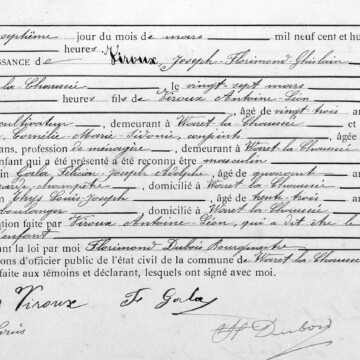 septième jour du mois de mars mil neuf cent et hu
heures
ISSANCE de Viroux, Joseph-Florimond Ghislain
la Chaussée le vingt sept mars
heures fils de Viroux Antoine-Léon
cultivateur, demeurant à Waret la Chaussée, âgé de vingt trois an
Cornélie-Marie-Sidonie, conjoint, âgée de
ans, profession de ménagère, demeurant à Waret la Chaussée
enfant qui a été présenté a été reconnu être masculin
in Gala, Félicien-Joseph Adolphe, âgé de quarante an
garde-champêtre, domicilié à Waret la Chaussée
in Louis-Joseph, âgé de trente-trois an
boulanger, domicilié à Waret la Chaussée
ation faite par Viroux Antoine-Léon, qui a dit être le
enfant
ant la loi par moi Florimond Dubois Bourgmestre
ons d'officier public de l'état civil de la commune de Waret-la-Chaussée
faite aux témoins et déclarant, lesquels ont signé avec moi.
Viroux F Gala
Dubois